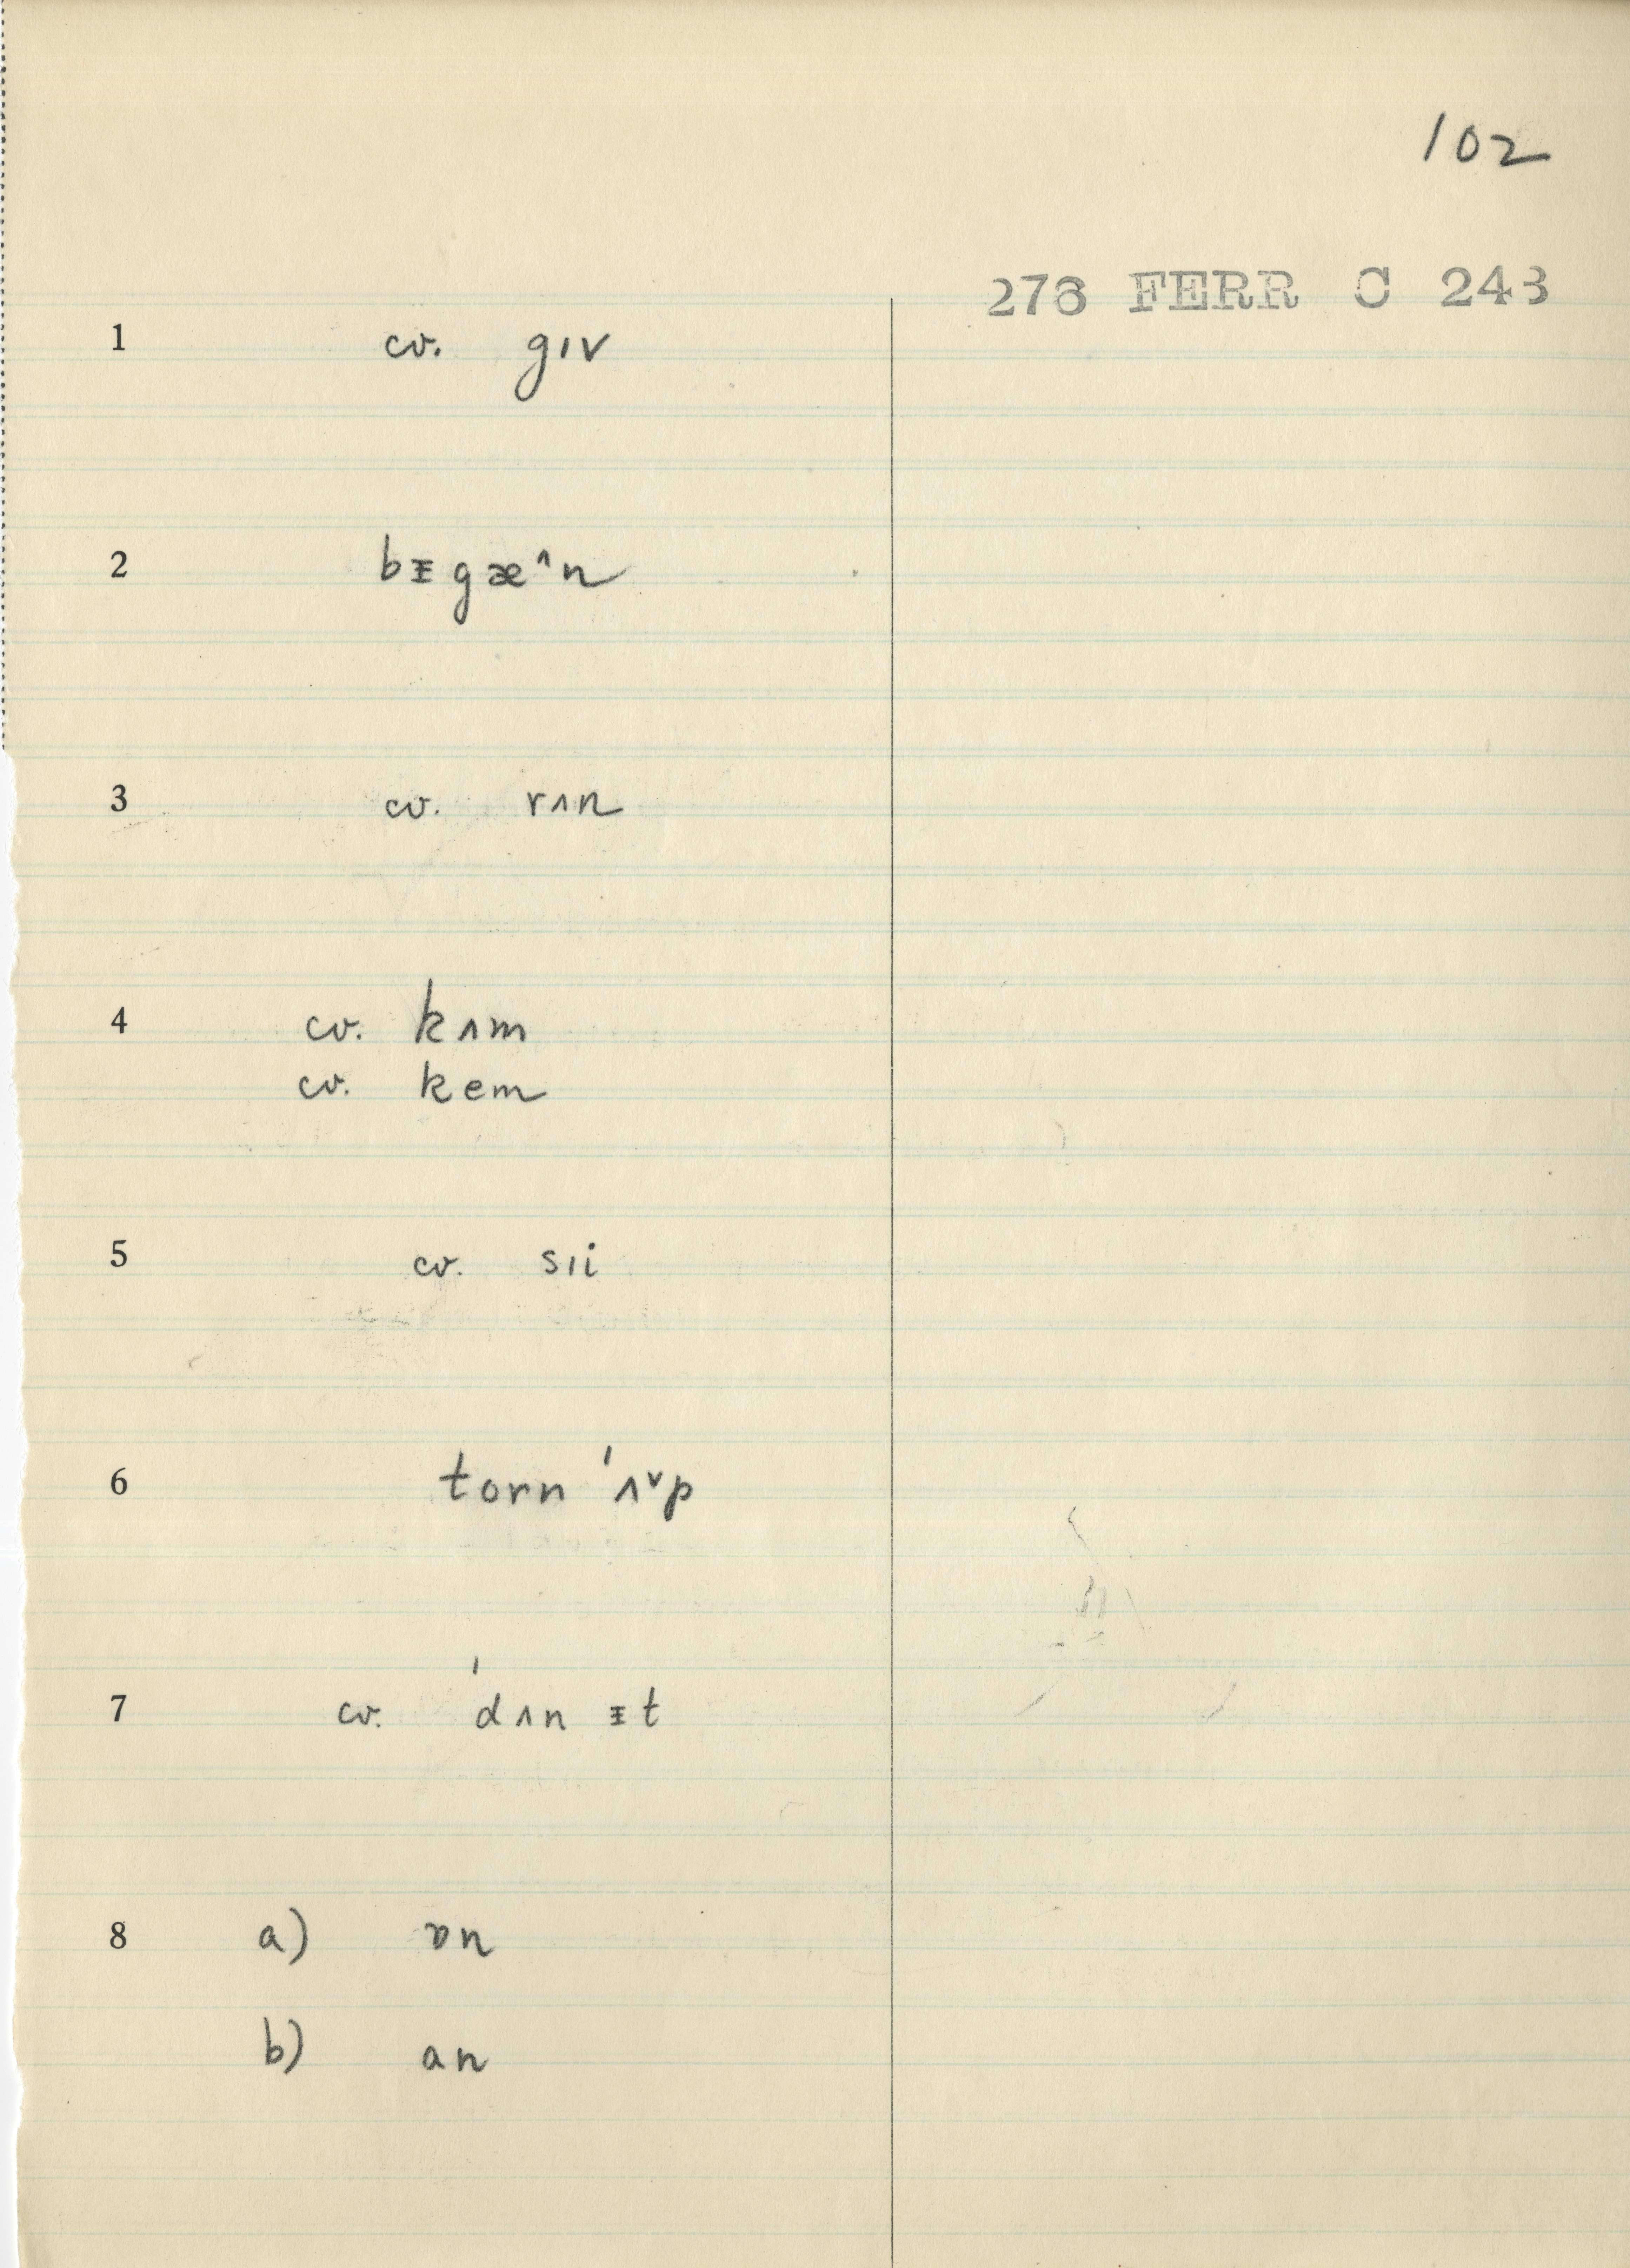 102
276 FERR C 243
1 cv. gɪv
2 bᵻgæ^n
3 cv. rʌn
4 cv. kʌm
cv. kem
5 cv. sɪi
6 torn 'ʌ˅p
7 cv. 'dʌn ᵻt
8 a) ɒn
b) an